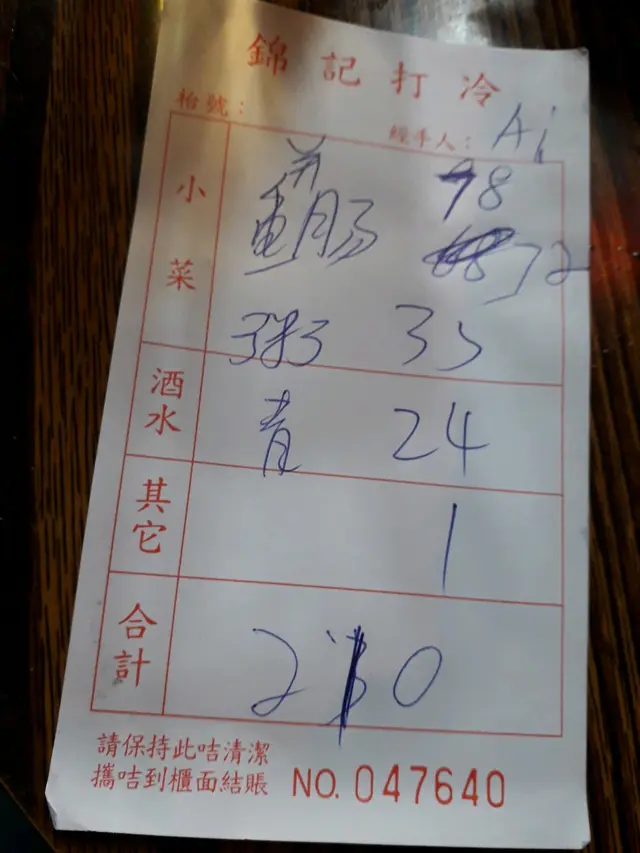 錦記打冷
枱號：
經手人： Ai
小菜
78
腸 72
粥 35
酒水 青 24
其它 1
合計 210
請保持此咭清潔
攜咭到櫃面結賬 NO. 047640